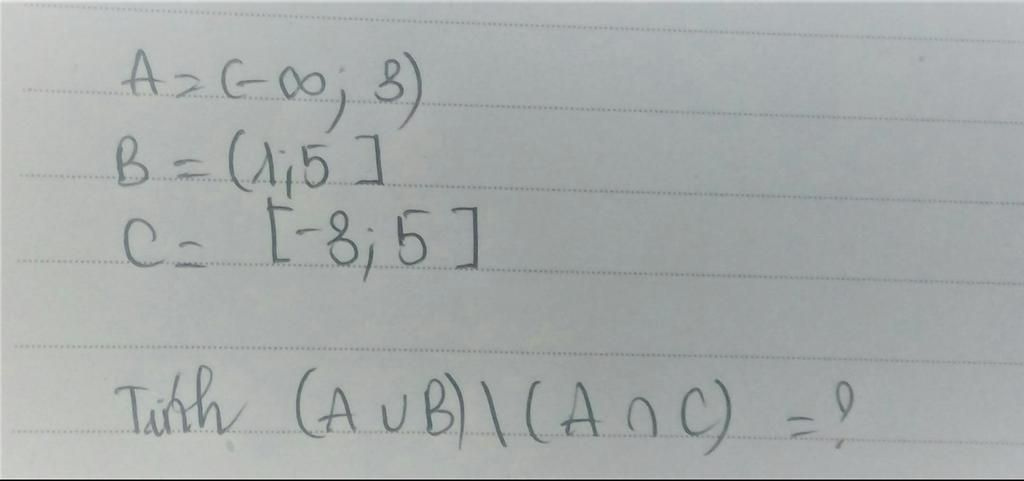 A = (-∞; 3)
B = (1; 5]
C = [-8; 5]
Tính (A ∪ B) \ (A ∩ C) = ?